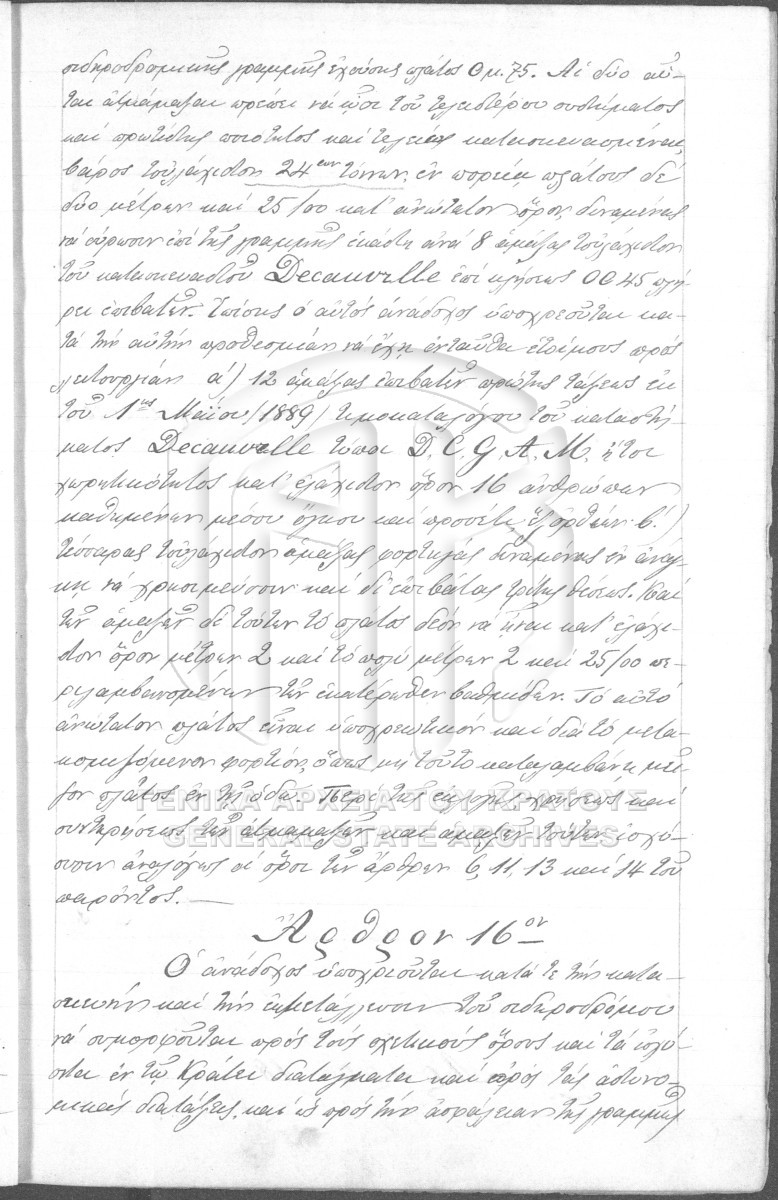 σιδηροδρομικῆς γραμμῆς ἐχούσης πλάτος 0μ.75. Αἱ δύο αὗ-
ται ἀτμάμαξαι πρέπει νά ὦσι τοῦ τελειοτέρου συστήματος
καί πρωτίστης ποιότητος καί τελείας κατασκευασμέναι,
βάρος τοὐλάχιστον 24 των τόνων, ἐν πορείᾳ, πλάτους δέ
δύο μέτρων καί 25/00 κατ' ἀνώτατον ὅρον, δυναμένας
νά σύρωσιν ἐπί τῆς γραμμῆς ἑκάστη ἀνά 8 ἁμάξας τοὐλάχιστον
τοῦ κατασκευαστοῦ Decauville ἐπί κλίσεως 0,045 πλή-
ρεις ἐπιβατῶν. Ἐπίσης ὁ αὐτός ἀνάδοχος ὑποχρεοῦται κα-
τά τήν αὐτήν προθεσμίαν νά ἔχῃ ἐνταῦθα ἑτοίμους πρός
λειτουργίαν α) 12 ἁμάξας ἐπιβατῶν πρώτης τάξεως ἐκ
τοῦ 1ης Μαΐου (1889) τιμοκαταλόγου τοῦ καταστή-
ματος Decauville τύποι D. C. G. A. M. ἤτοι
χωρητικότητος κατ' ἐλάχιστον ὅρον 16 ἀνθρώπων
καθημένων μέσου ὄγκου καί προσέτι ἕξ ὀρθίων β.)
τέσσαρας τοὐλάχιστον ἁμάξας φορτηγάς δυναμένας ἐν ἀνάγ-
κῃ νά χρησιμεύσωσιν καί δι' ἐπιβάτας τρίτης θέσεως. Καί
τῶν ἁμαξῶν δέ τούτων τό πλάτος δέον νά ᾖναι κατ' ἐλάχι-
στον ὅρον μέτρων 2 καί τό πολύ μέτρων 2 καί 25/00 πε-
ριλαμβανομένων τῶν ἑκατέρωθεν βαθμίδων. Τό αὐτό
ἀνώτατον πλάτος εἶναι ὑποχρεωτικόν καί διά τό μετα-
κομιζόμενον φορτίον, ὅπως μή τοῦτο καταλαμβάνῃ μεῖ-
ζον πλάτος ἐν τῇ ὁδῷ. Περί τῆς ἐκλογῆς χρήσεως καί
συντηρήσεως τῶν ἀτμαμαξῶν καί ἁμαξῶν τούτων ἰσχύ-
ουσιν ἀναλόγως οἱ ὅροι τῶν ἄρθρων 6, 11, 13 καί 14 τοῦ
παρόντος. —
Ἄρθρον 16ον
Ὁ ἀνάδοχος ὑποχρεοῦται κατά τε τήν κατα-
σκευήν καί τήν ἐκμετάλλευσιν τοῦ σιδηροδρόμου
νά συμμορφοῦται πρός τούς σχετικούς ὅρους καί τά ἰσχύ-
οντα ἐν τῷ Κράτει διατάγματα καί πρός τάς ἀστυνο-
μικάς διατάξεις, καί ὡς πρός τήν ἀσφάλειαν τῆς γραμμῆς
ΓΕΝΙΚΑ ΑΡΧΕΙΑ ΤΟΥ ΚΡΑΤΟΥΣ
GENERAL STATE ARCHIVES